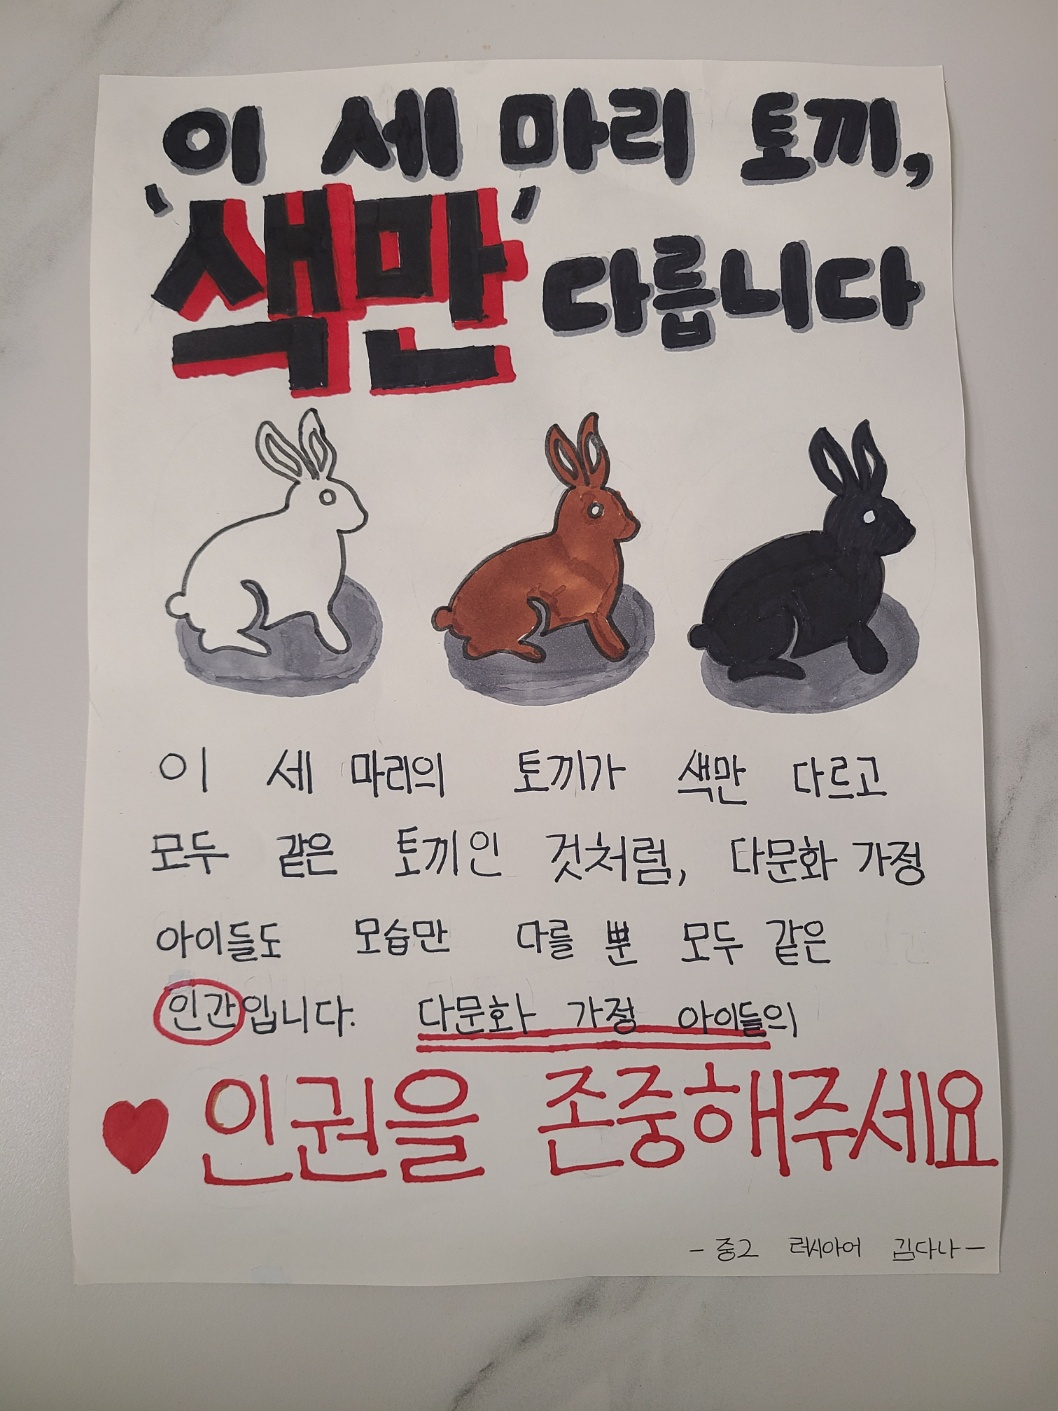 이 세 마리 토끼,
'색만' 다릅니다
이 세 마리의 토끼가 색만 다르고
모두 같은 토끼인 것처럼, 다문화 가정
아이들도 모습만 다를 뿐 모두 같은
인간입니다. 다문화 가정 아이들의
♥ 인권을 존중해주세요
- 중2 러시아어 김다나 -